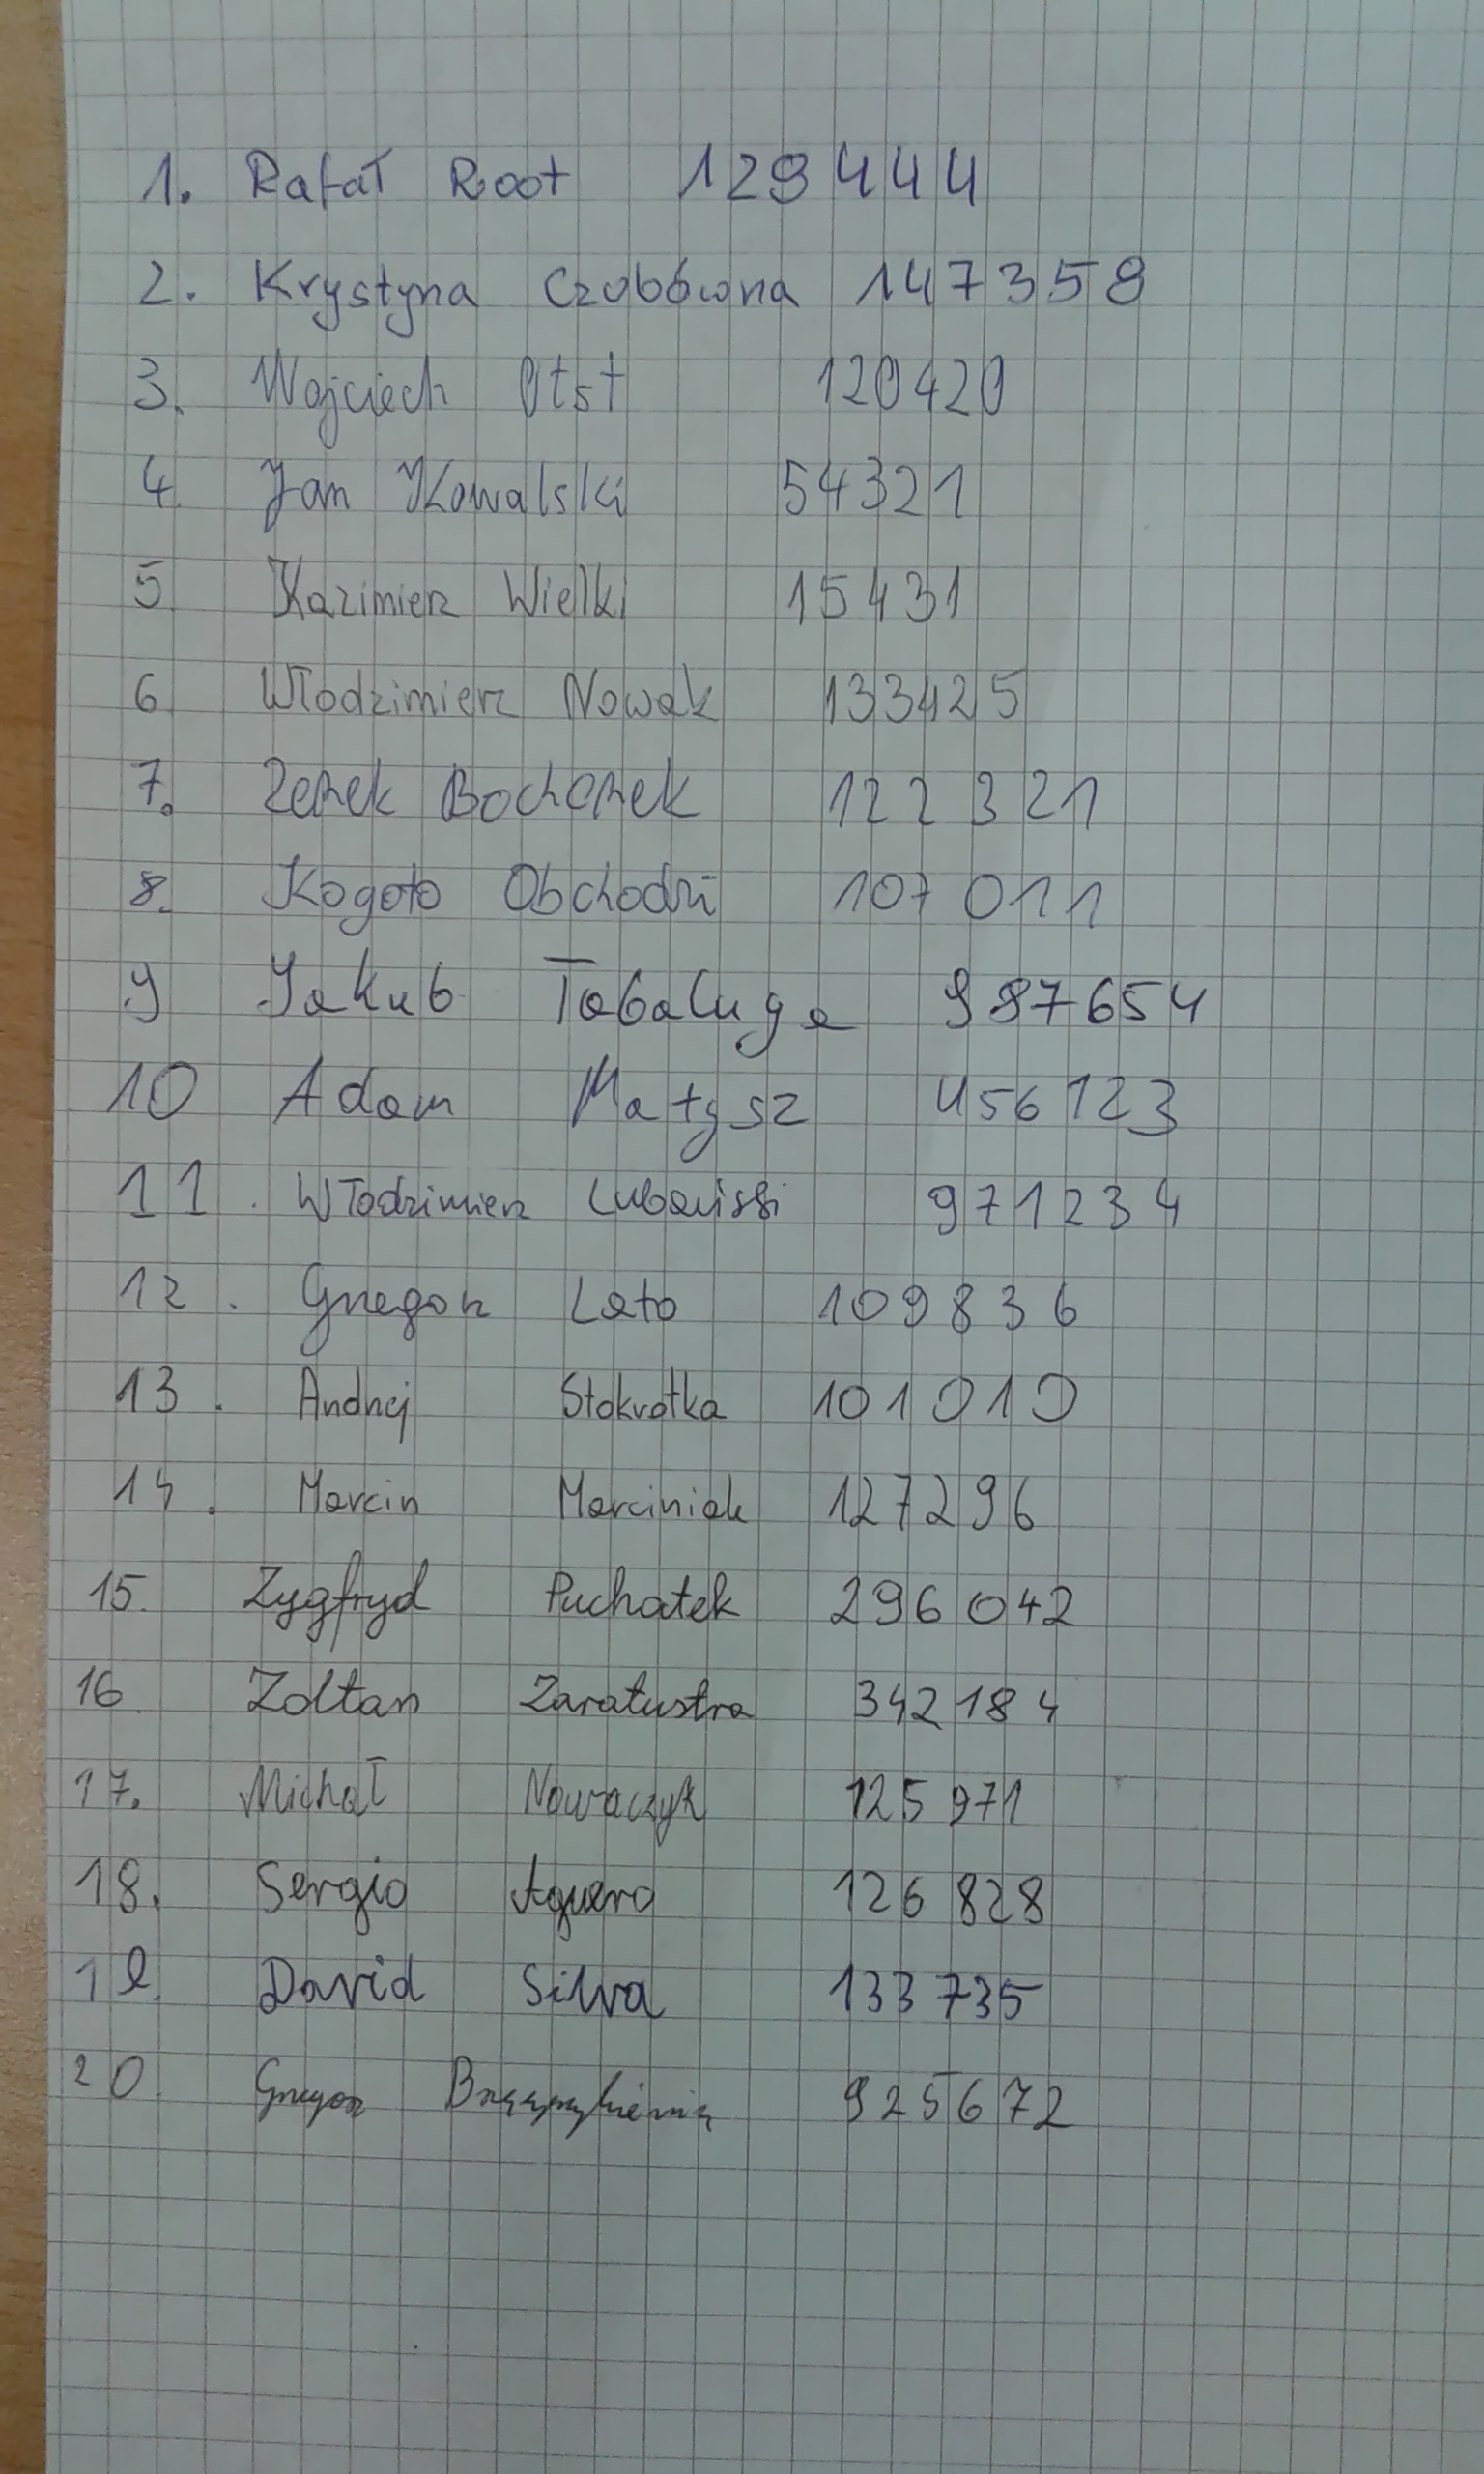 1. Rafał Root 129444
2. Krystyna Czubówna 147359
3. Wojciech Otst 120420
4. Jan Kowalski 54321
5 Kazimierz Wielki 15431
6 Włodzimierz Nowak 133425
7. Zenek Bochenek 122321
8. Kogoto Obchodzi 107011
9 Jakub Tabaluga 987654
10 Adam Małysz 456123
11. Włodzimierz 971234
12. Grzegorz Lato 109836
13. Andrzej Stokrotka 101010
14. Marcin Marciniak 127296
15. Zygfryd Puchatek 296042
16 Zoltan Zaratustra 342184
17. Michał Nowaczyk 125971
18. Sergio Aguero 126828
19 David Silva 133735
20 Grzegorz 925672